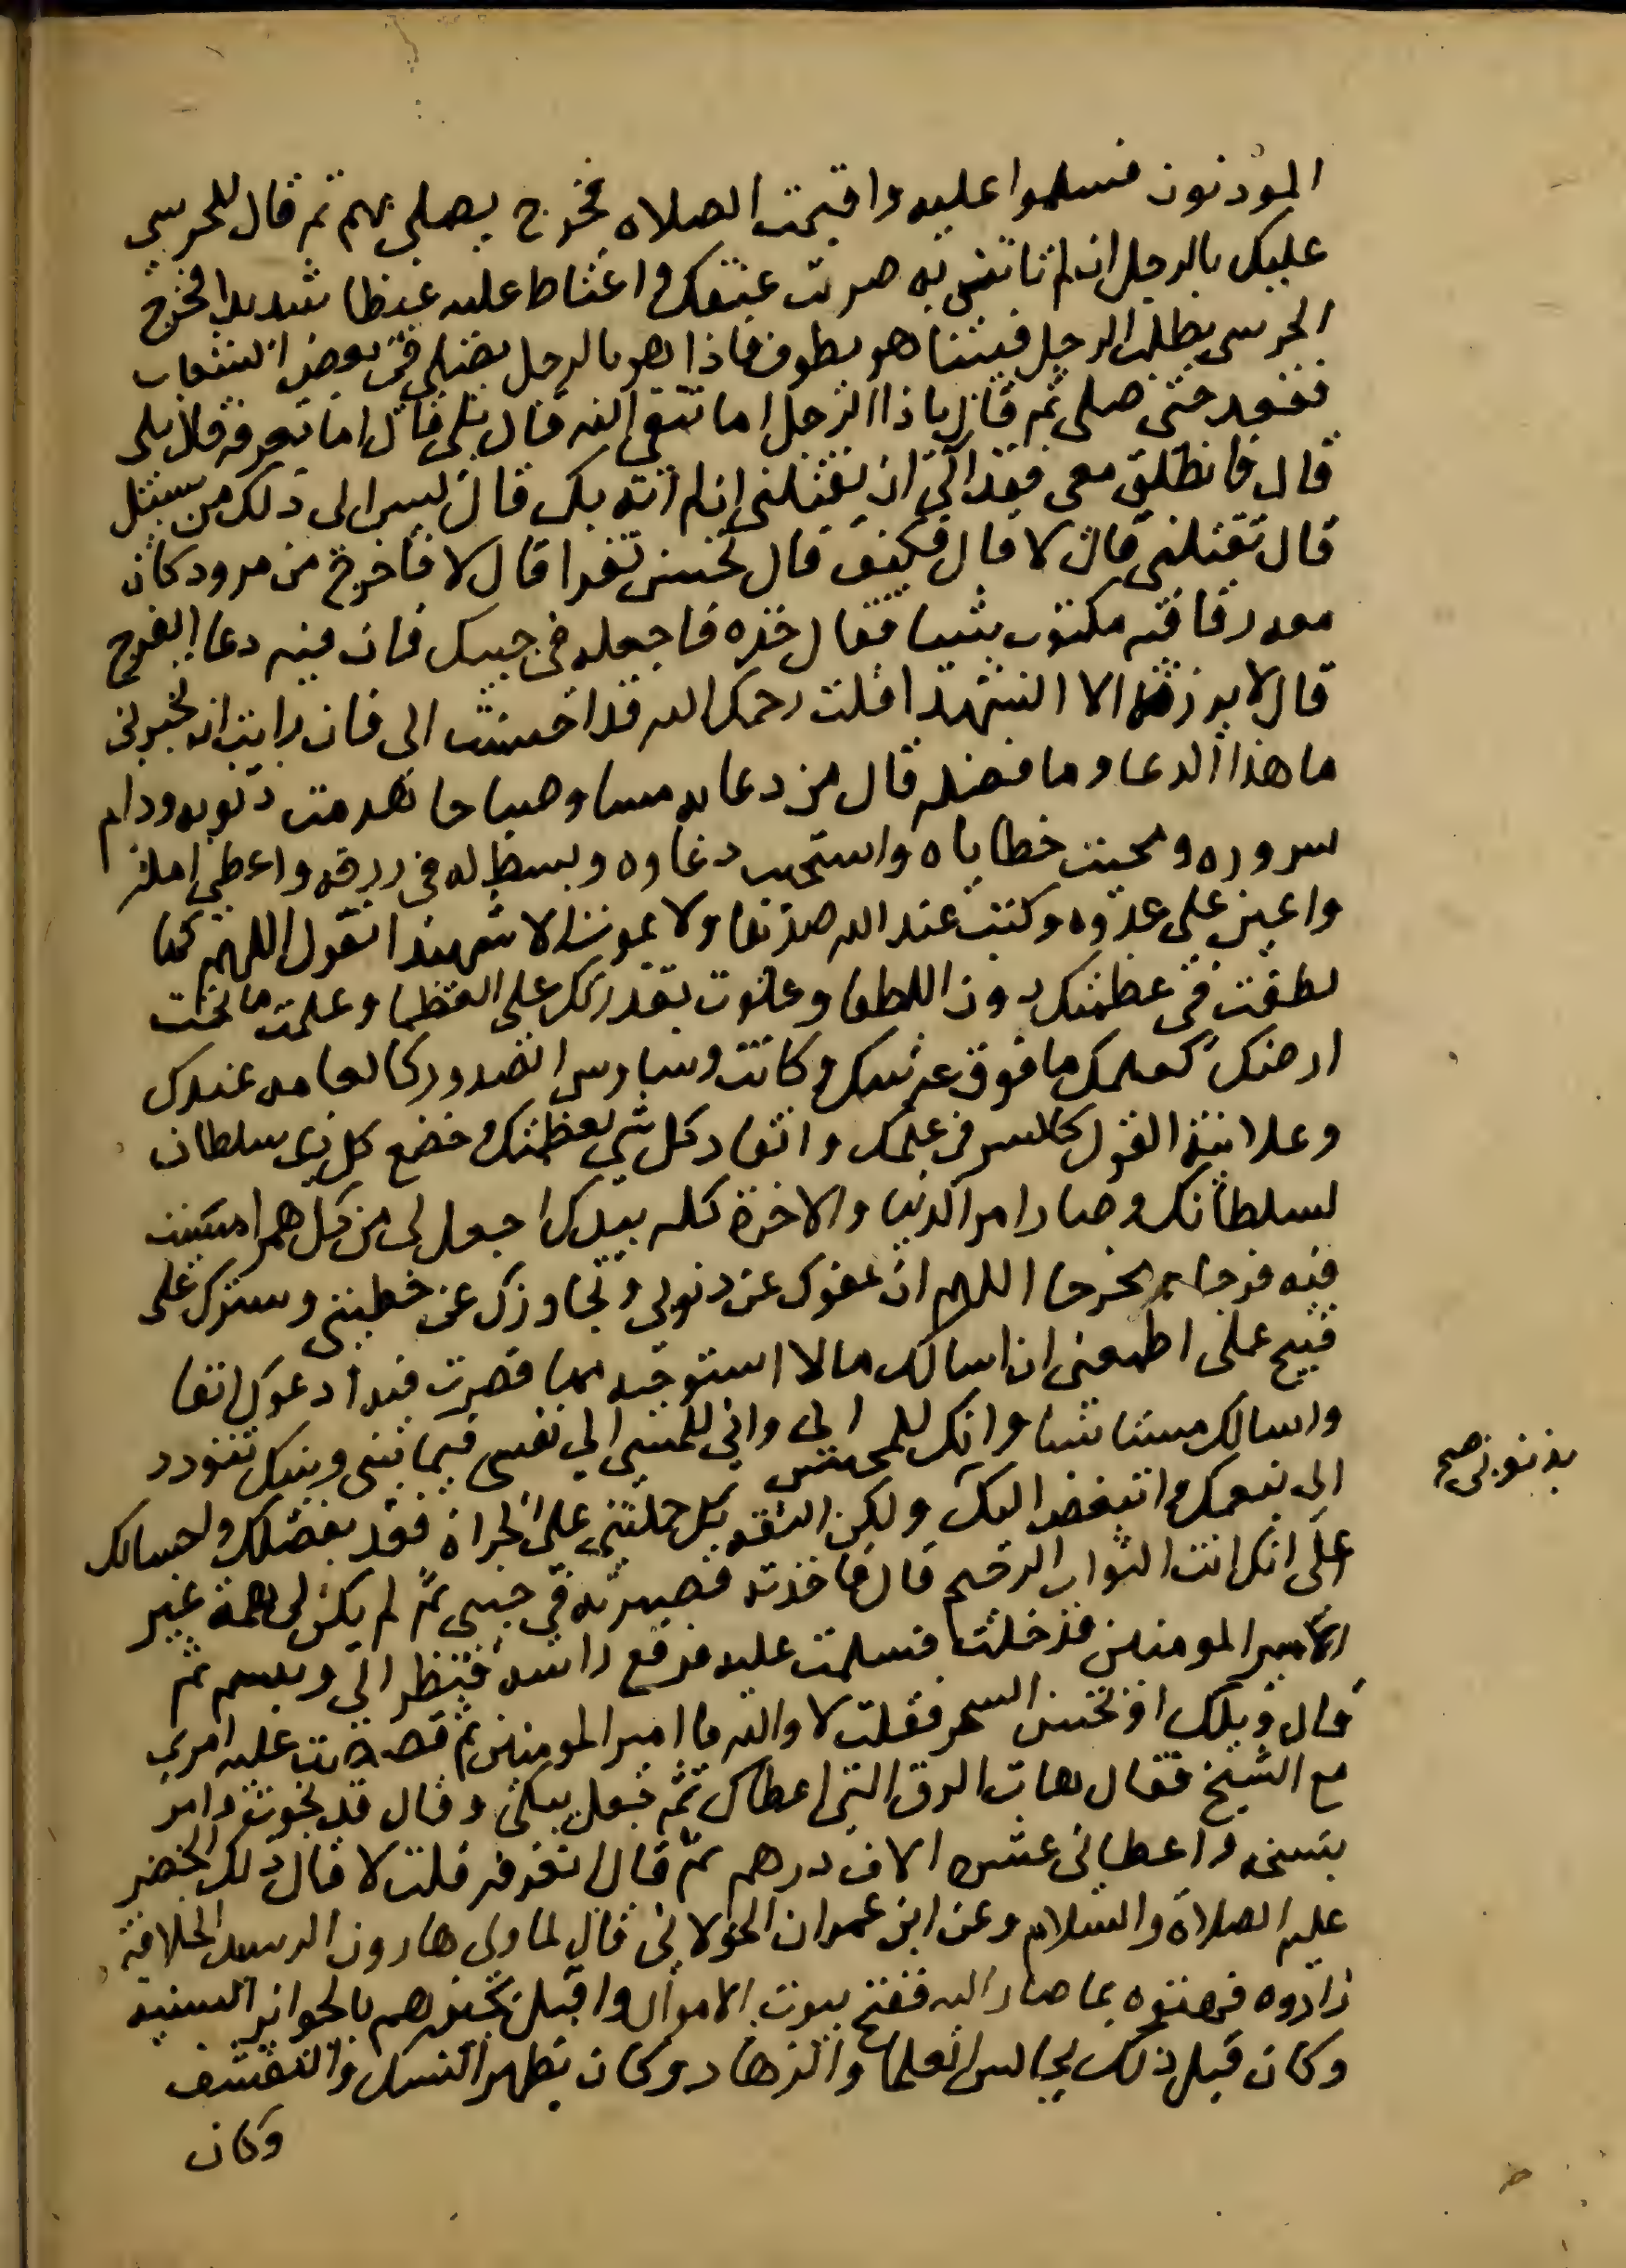 المؤذنون فسلموا عليه واقيمت الصلاه فخرج يصلي بهم ثم قال للحرسي
عليك بالرجل ان لم تاتني به ضربت عنقك واغتاط عليه غيظا شديدا فخرج
الحرسي بطلب الرجل فبينما هو يطوف فاذا هو بالرجل يصلي في بعض الشعاب
فقعد حتى صلى ثم قال يا ذا الرجل اما تتقي الله قال بلى قال اما تعرفه قال بلى
قال فانطلق معي فقد آلى ان يقتلني ان لم آته بك قال ليس الى ذلك من سبيل
قال تقتلني قال لا قال فكيف قال تحسن تقرا قال لا فاخرج من مرود كان
معه رقا فيه مكتوب شيا فقال خذه فاجعله في جيبك فان فيه دعا الفرج
قال لا يرزقه الا الشهدا قلت رحمك الله قد احسنت الي فان رايت ان تخبرني
ما هذا الدعا وما فضله قال من دعا به مسا وصباحا هدمت ذنوبه ودام
سروره ومحيت خطاياه واستجيب دعاوه وبسط له في رزقه واعطي امله
واعين على عدوه وكتب عند الله صديقا ولا يموت الا شهيدا تقول اللهم كما
لطفت في عظمتك دون اللطفا وعلوت بقدرتك على العظما وعلمت ما تحت
ارضك كعلمك ما فوق عرشك وكانت وساوس الصدور كالعلانيه عندك
وعلانية القول كالسر في علمك وانقاد كل شي لعظمتك وخضع كل ذي سلطان
لسلطانك وصار امر الدنيا والاخرة كله بيدك اجعل لي من كل هم امسيت
فيه فرجا ومخرجا اللهم ان عفوك عن ذنوبي وتجاوزك عن خطيتي وسترك على
قبيح عملي اطمعني ان اسالك مالا استوجبه مما قصرت فيه ادعوك امنا
واسالك مستانسا وانك للمحسن الي واني للمسي الي نفسي فيما بيني وبينك تتودد
الي بنعمك واتبغض اليك ولكن الثقه بك حملتني على الجراة فعد بفضلك واحسانك
بذنوبي صح
علي انك انت التواب الرحيم قال فاخذته فصيرته في جيبي ثم لم يكن لي همة غير
امير المومنين فدخلت فسلمت عليه فرفع راسه فنظر الي وتبسم ثم
قال ويلك او تحسن السحر فقلت لا والله يا امير المومنين ثم قصصت عليه امري
مع الشيخ فقال هات الرق التي اعطاك ثم جعل يبكي وقال قد نجوت وامر
بنسخه واعطاني عشرة الاف درهم ثم قال اتعرفه قلت لا قال ذلك الخضر
عليه الصلاة والسلام وعن ابن عمران الخولاني قال لما ولي هارون الرشيد الخلافة
زاروه فهنوه بما صار اليه ففتح بيوت الاموال واقبل يجيزهم بالجوايز السنيه
وكان قبل ذلك يجالس العلما والزهاد وكان يظهر النسك والتقشف
وكان